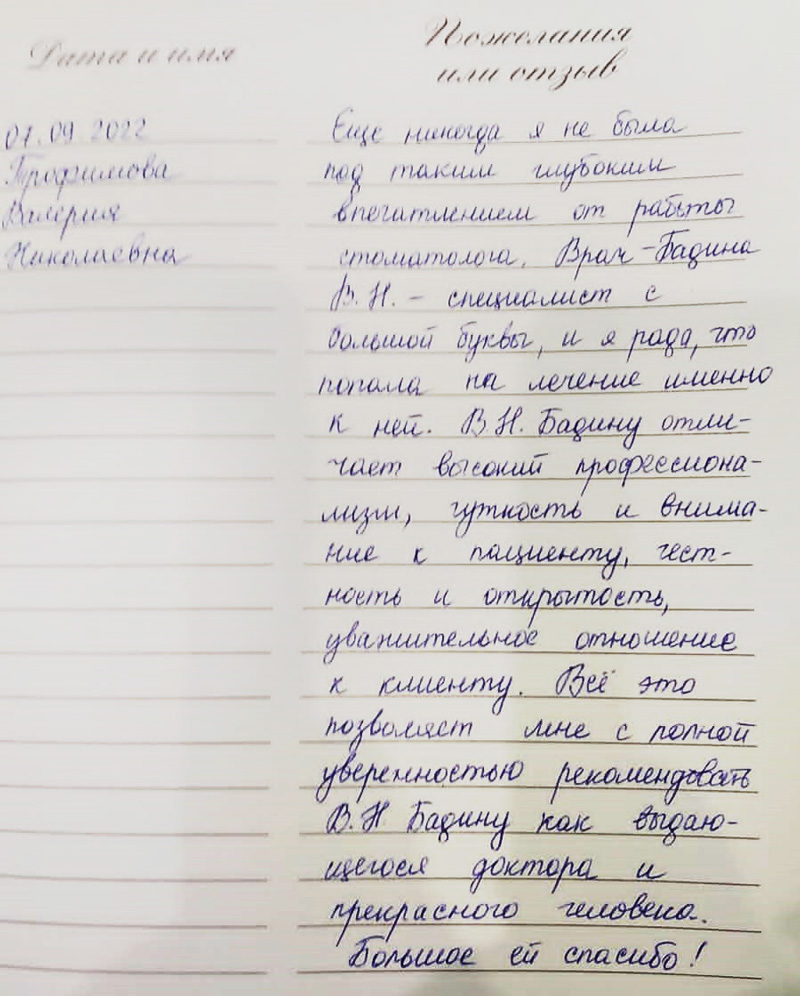 Дата и имя
Пожелания
или отзыв
07.09.2022
Трофимова
Валерия
Николаевна
Еще никогда я не была
под таким глубоким
впечатлением от работы
стоматолога. Врач - Бадина
В.Н. - специалист с
большой буквы, и я рада, что
попала на лечение именно
к ней. В.Н. Бадину отли-
чает высокий профессиона-
лизм, чуткость и внима-
ние к пациенту, чест-
ность и открытость,
уважительное отношение
к клиенту. Всё это
позволяет мне с полной
уверенностью рекомендовать
В.Н Бадину как выдаю-
щегося доктора и
прекрасного человека.
Большое ей спасибо!